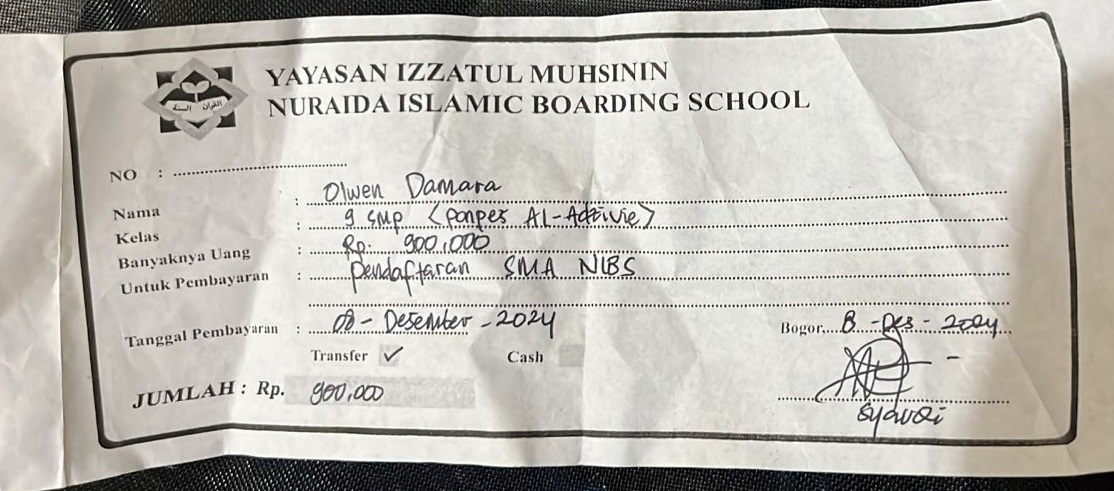 YAYASAN IZZATUL MUHSININ
NURAIDA ISLAMIC BOARDING SCHOOL
القرآن السنة
NO :
Nama : Olwen Damara
Kelas : 9 SMP <ponpes Al-Adzivie>
Banyaknya Uang : Rp. 900,000
Untuk Pembayaran : pendaftaran SMA NIBS
Tanggal Pembayaran : 08 - Desember - 2024
Bogor, 8 - Des - 2024
Transfer ✓ Cash
JUMLAH : Rp. 900,000
Syauqi